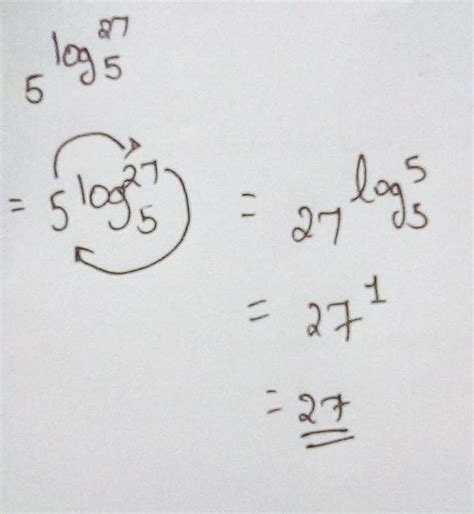 5^{log_5^{27}}
= 5^{log_5^{27}} = 27^{log_5^5}
= 27^1
= 27